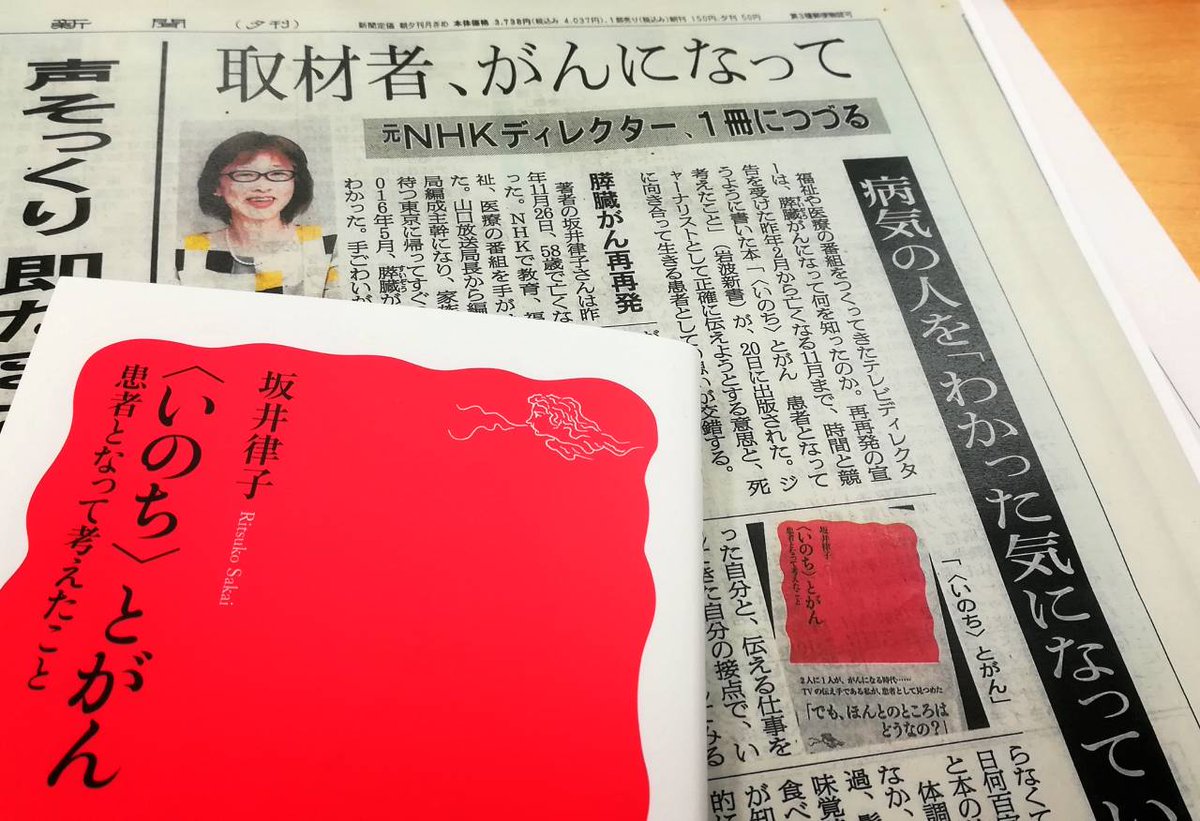 新聞
(夕刊)
新聞定価 朝夕刊月ぎめ 本体価格 3,738円(税込み 4,037円)、1部売り(税込み)朝刊 150円、夕刊 50円
第3種郵便物認可
取材者、がんになって
元NHKディレクター、1冊につづる
病気の人を「わかった気になってい
福祉や医療の番組をつくってきたテレビディレクタ
ーは、膵臓がんになって何を知ったのか。再再発の宣
告を受けた昨年2月から亡くなる11月まで、時間と競
うように書いた本「〈いのち〉とがん 患者となって
考えたこと」(岩波新書)が、20日に出版された。ジ
ャーナリストとして正確に伝えようとする意思と、死
に向き合って生きる患者としての思いが交錯する。
膵臓がん再再発
著者の坂井律子さんは昨
年11月26日、58歳で亡くな
った。NHKで教育、福
祉、医療の番組を手が
た。山口放送局長から編
局編成主幹になり、家族
待つ東京に帰ってすぐ
016年5月、膵臓が
わかった。手ごわいが
声そっくり 即
「〈いのち〉とがん」
坂井律子
〈いのち〉とがん
患者となって考えたこと
2人に1人が、がんになる時代……
TVの伝え手である私が、患者として見つめた
「でも、ほんとのところは
どうなの?」
った自分と、伝える仕事を
してきた自分の接点で、い
らなくて
日何百
と本の
体調
なか、
過、
味覚
食べ
が知
的に
坂井律子
Ritsuko Sakai
〈いのち〉とがん
患者となって考えたこと